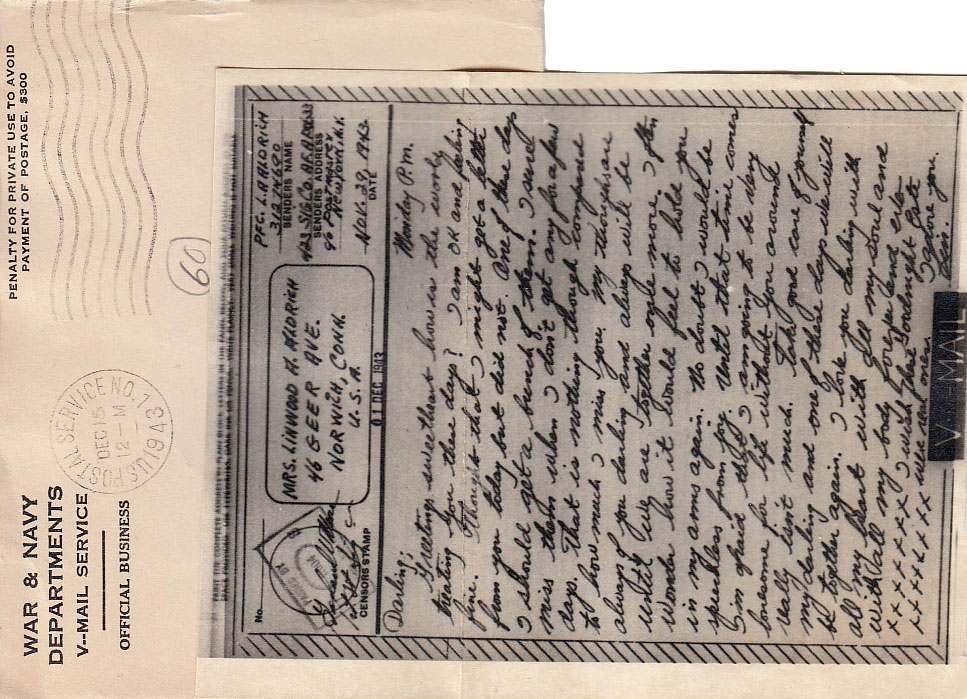 WAR & NAVY
DEPARTMENTS
V--MAIL SERVICE
OFFICIAL BUSINESS
U.S. POSTAL SERVICE NO. 1
DEC 15
12-M
1943
PENALTY FOR PRIVATE USE TO AVOID
PAYMENT OF POSTAGE, $300
60
No.
PASSED BY
CENSOR'S STAMP
MRS. LINWOOD A. ALDRICH
46 GEER AVE.
NORWICH, CONN.
U.S.A.
01 DEC 1943
PFC. L.A. ALDRICH
31274690
SENDER'S NAME
SENDER'S ADDRESS
% POSTMASTER
NEW YORK, N.Y.
NOV. 29, 1943
DATE
Monday P.m.
Darling;
Greetings sweetheart how is the world
treating you these days? I am OK and feeling
fine. Thought that I might get a letter
from you today but did not. One of these days
I should get a bunch of them. I surely
miss them when I don't get any for a few
days. That is nothing though compared
to how much I miss you. My thoughts are
always of you darling and always will be
until we are together once more. I often
wonder how it would feel to hold you
in my arms again. No doubt I would be
speechless from joy. Until that time comes
I'm afraid that I am going to be very
lonesome for life without you around
really isn't much. Take good care of yourself
my darling and one of these days we will
be together again. I love you darling with
all my heart with all my soul and
with all my body forever and ever
xxxxxxx I wish that Goodnight Pat
xxxxxxxx were real ones I adore you.
V--MAIL